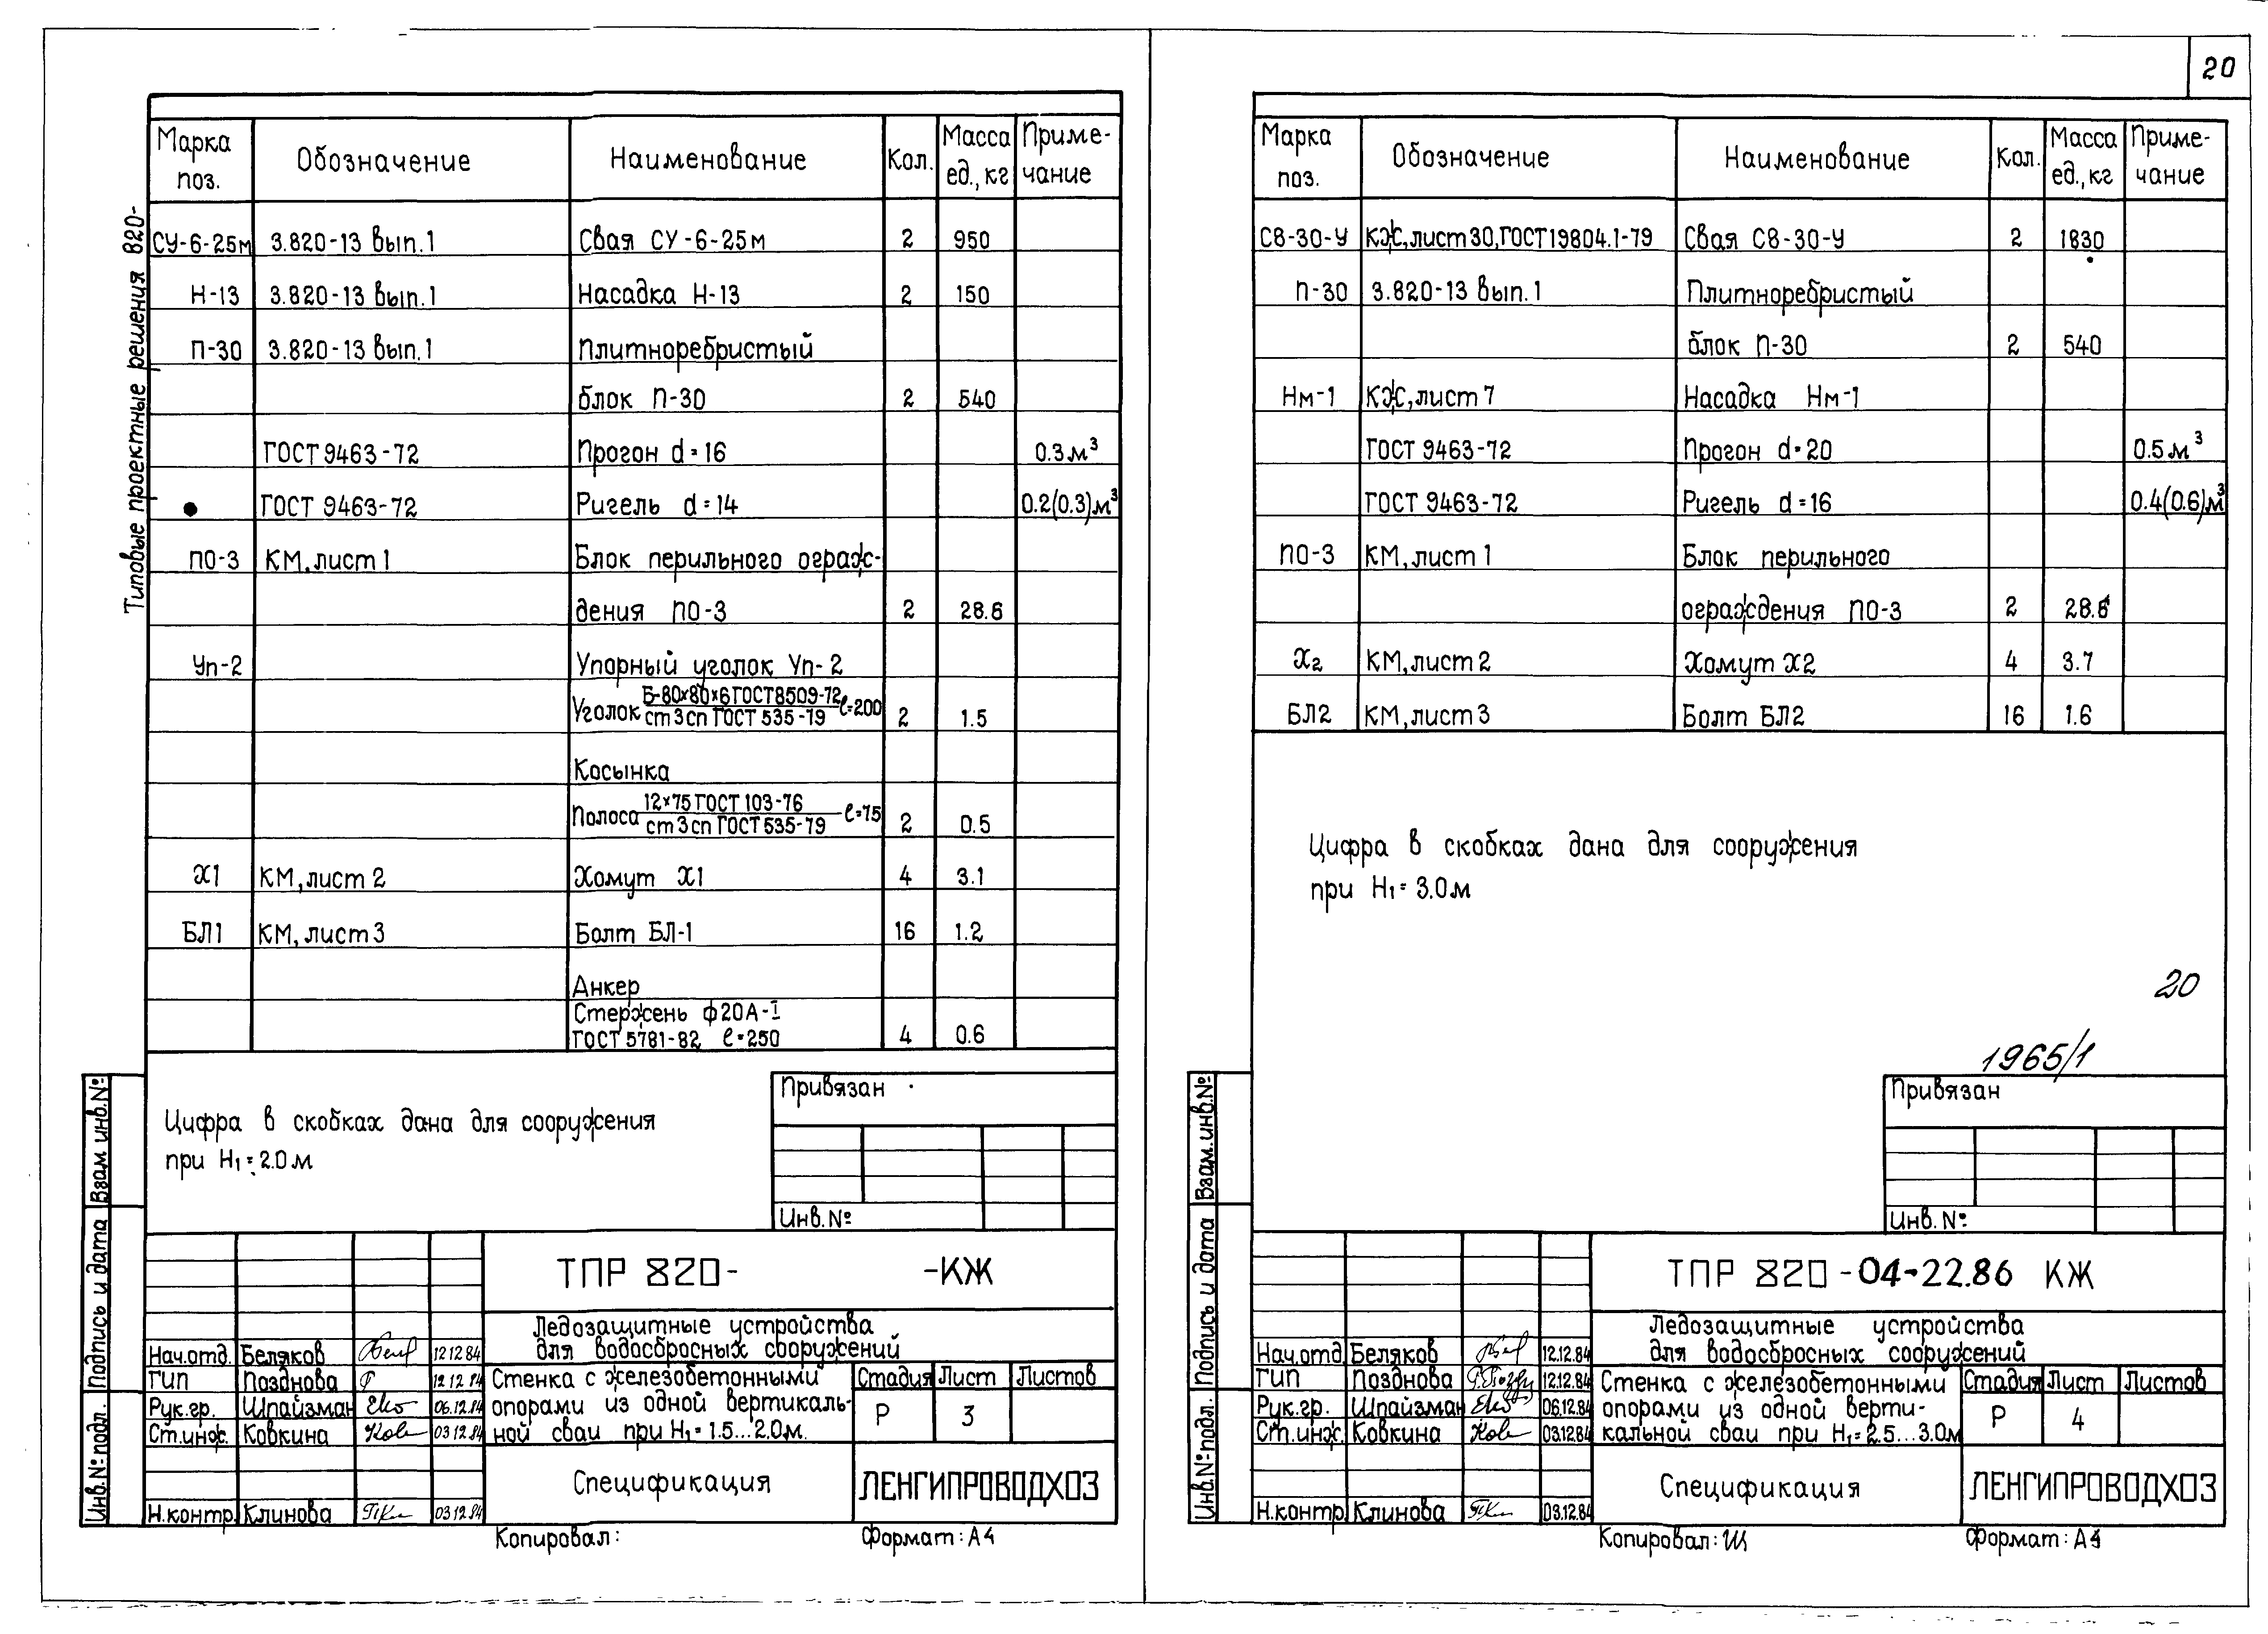 20
Типовые проектные решения 820-
Марка поз. Обозначение Наименование Кол. Масса ед., кг Приме-чание
СУ-6-25м 3.820-13 вып.1 Свая СУ-6-25м 2 950
Н-13 3.820-13 вып.1 Насадка Н-13 2 150
П-30 3.820-13 вып.1 Плитноребристый
блок П-30 2 540
ГОСТ 9463-72 Прогон d=16 0.3м³
ГОСТ 9463-72 Ригель d=14 0.2(0.3)м³
ПО-3 КМ, лист 1 Блок перильного ограж-
дения ПО-3 2 28.6
Уп-2 Упорный уголок Уп-2
Уголок Б-80×80×6 ГОСТ 8509-72 / ст3сп ГОСТ 535-79 ℓ=200 2 1.5
Косынка
Полоса 12×75 ГОСТ 103-76 / ст3сп ГОСТ 535-79 ℓ=75 2 0.5
Х1 КМ, лист 2 Хомут Х1 4 3.1
БЛ1 КМ, лист 3 Болт БЛ-1 16 1.2
Анкер
Стержень ф20А-I
ГОСТ 5781-82 ℓ=250 4 0.6
Цифра в скобках дана для сооружения
при Н₁=2.0м
Привязан
Инв. №
Взам инв. №
Подпись и дата
Инв. № подл.
ТПР 820- -КЖ
Ледозащитные устройства
для водосбросных сооружений
Нач.отд. Беляков 12 12 84
ГИП Позднова 12 12 84
Рук.гр. Шпайзман 06.12.84
Ст.инж. Ковкина 03 12 84
Н.контр. Клинова 03 12 84
Стенка с железобетонными
опорами из одной вертикаль-
ной сваи при Н₁=1.5...2.0м.
Стадия Лист Листов
Р 3
Спецификация
ЛЕНГИПРОВОДХОЗ
Копировал: Формат: А4
Марка поз. Обозначение Наименование Кол. Масса ед., кг Приме-чание
С8-30-У КЖ, лист 30, ГОСТ 19804.1-79 Свая С8-30-У 2 1830
П-30 3.820-13 вып.1 Плитноребристый
блок П-30 2 540
Нм-1 КЖ, лист 7 Насадка Нм-1
ГОСТ 9463-72 Прогон d=20 0.5м³
ГОСТ 9463-72 Ригель d=16 0.4(0.6)м³
ПО-3 КМ, лист 1 Блок перильного
ограждения ПО-3 2 28.6
Х2 КМ, лист 2 Хомут Х2 4 3.7
БЛ2 КМ, лист 3 Болт БЛ2 16 1.6
Цифра в скобках дана для сооружения
при Н₁=3.0м
20
1965/1
Привязан
Инв. №
Взам. инв. №
Подпись и дата
Инв. № подл.
ТПР 820-04-22.86 КЖ
Ледозащитные устройства
для водосбросных сооружений
Нач.отд. Беляков 12.12.84
ГИП Позднова 12.12.84
Рук.гр. Шпайзман 06.12.84
Ст.инж. Ковкина 03.12.84
Н.контр. Клинова 03.12.84
Стенка с железобетонными
опорами из одной верти-
кальной сваи при Н₁=2.5...3.0м
Стадия Лист Листов
Р 4
Спецификация
ЛЕНГИПРОВОДХОЗ
Копировал: Формат: А4